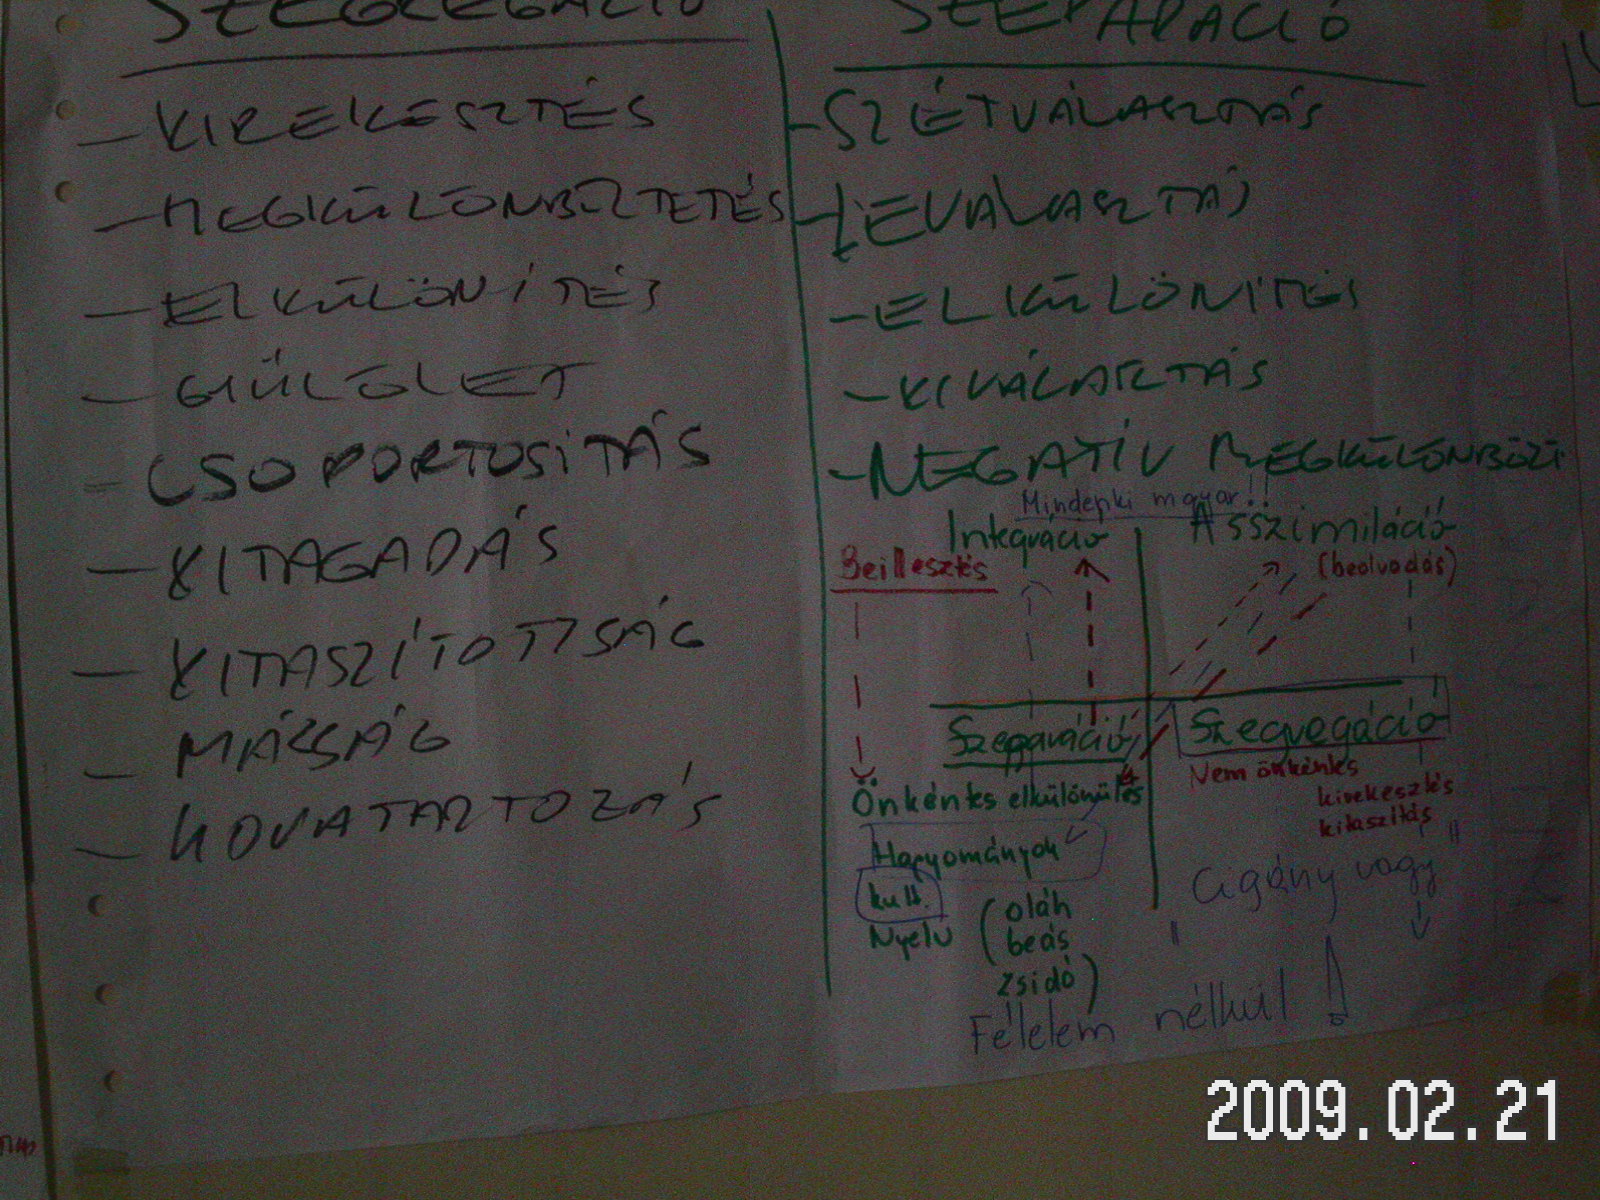 SZEGREGÁCIÓ
- KIREKESZTÉS
- MEGKÜLÖNBÖZTETÉS
- ELKÜLÖNITÉS
- GYÜLÖLET
- CSOPORTOSITÁS
- KITAGADÁS
- KITASZÍTOTTSÁG
- MÁSSÁG
- HOVATARTOZÁS
SZEPARÁCIÓ
- SZÉTVÁLASZTÁS
- LEVÁLASZTÁS
- ELKÜLÖNITÉS
- KIVÁLASZTÁS
- NEGATÍV MEGKÜLÖNBÖZT
Mindenki magyar!!
Integráció
Asszimiláció
Beillesztés
(beolvadás)
Szeparáció
Szegregáció
Önkéntes elkülönülés
Nem önkéntes
kirekesztés
kitaszítás
Hagyományok
kult.
Nyelv
(oláh
beás
zsidó)
Cigány vagy
Félelem nélkül!
2009.02.21